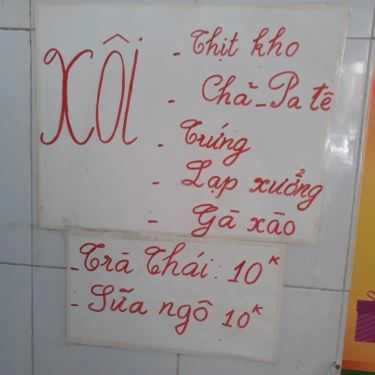 XÔI
- Thịt kho
- Chả - Pa tê
- Trứng
- Lạp xưởng
- Gà xào
- Trà Thái: 10K
- Sữa ngô 10K